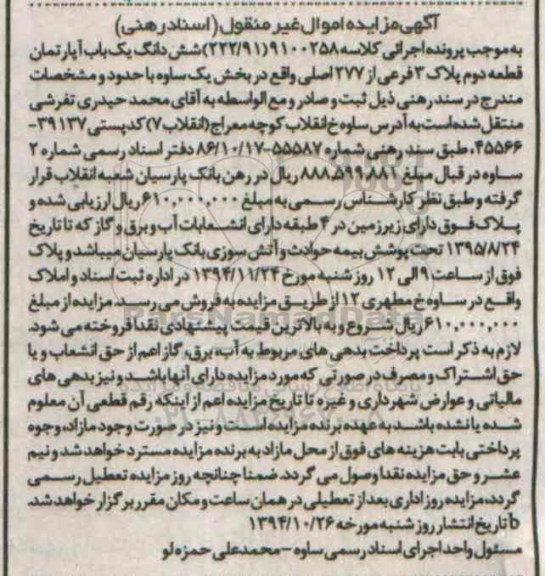 آگهی مزایده اموال غیر منقول (اسناد رهنی)
به موجب پرونده اجرائی کلاسه ۹۱۰۰۲۵۸ (۲۲۲/۹۱) شش دانگ یک باب آپارتمان
قطعه دوم پلاک ۳ فرعی از ۲۷۷ اصلی واقع در بخش یک ساوه با حدود و مشخصات
مندرج در سند رهنی ذیل ثبت و صادر و مع الواسطه به آقای محمد حیدری تفرشی
منتقل شده است به آدرس ساوه خ انقلاب کوچه معراج (انقلاب ۷) کدپستی ۳۹۱۳۷-
۴۵۵۶۶، طبق سند رهنی شماره ۵۵۵۸۷-۸۶/۱۰/۱۷ دفتر اسناد رسمی شماره ۲
ساوه در قبال مبلغ ۸۸۸،۵۹۹،۸۸۱ ریال در رهن بانک پارسیان شعبه انقلاب قرار
گرفته و طبق نظر کارشناس رسمی به مبلغ ۶۱۰،۰۰۰،۰۰۰ ریال ارزیابی شده و
پلاک فوق دارای زیرزمین در ۴ طبقه دارای انشعابات آب و برق و گاز که تا تاریخ
۱۳۹۵/۸/۲۴ تحت پوشش بیمه حوادث و آتش سوزی بانک پارسیان میباشد و پلاک
فوق از ساعت ۹ الی ۱۲ روز شنبه مورخ ۱۳۹۴/۱۱/۲۴ در اداره ثبت اسناد و املاک
واقع در ساوه خ مطهری ۱۲ از طریق مزایده به فروش می رسد. مزایده از مبلغ
۶۱۰،۰۰۰،۰۰۰ ریال شروع و به بالاترین قیمت پیشنهادی نقدا فروخته می شود.
لازم به ذکر است پرداخت بدهی های مربوط به آب، برق، گاز اعم از حق انشعاب و یا
حق اشتراک و مصرف در صورتی که مورد مزایده دارای آنها باشد و نیز بدهی های
مالیاتی و عوارض شهرداری و غیره تا تاریخ مزایده اعم از اینکه رقم قطعی آن معلوم
شده یا نشده باشد به عهده برنده مزایده است و نیز در صورت وجود مازاد، وجوه
پرداختی بابت هزینه های فوق از محل مازاد به برنده مزایده مسترد خواهد شد و نیم
عشر و حق مزایده نقدا وصول می گردد. ضمنا چنانچه روز مزایده تعطیل رسمی
گردد، مزایده روز اداری بعد از تعطیلی در همان ساعت و مکان مقرر برگزار خواهد شد.
b تاریخ انتشار روز شنبه مورخه ۱۳۹۴/۱۰/۲۶
مسئول واحد اجرای اسناد رسمی ساوه - محمدعلی حمزه لو
ParsNamadData